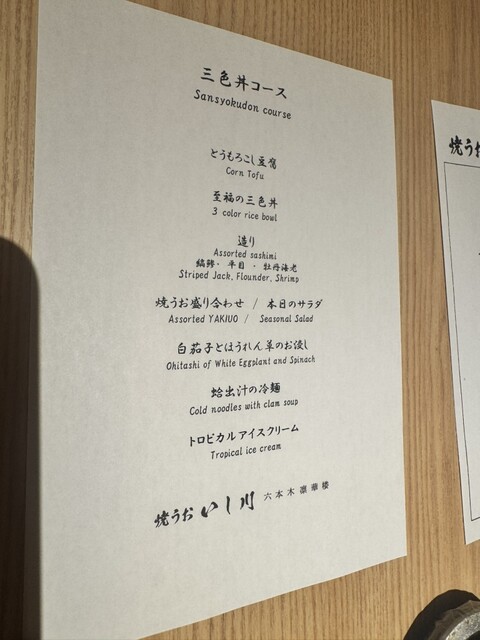 三色丼コース
Sansyokudon course
とうもろこし豆腐
Corn Tofu
至福の三色丼
3 color rice bowl
造り
Assorted sashimi
縞鯵・平目・牡丹海老
Striped Jack, Flounder, Shrimp
焼うお盛り合わせ / 本日のサラダ
Assorted YAKIUO / Seasonal Salad
白茄子とほうれん草のお浸し
Ohitashi of White Eggplant and Spinach
蛤出汁の冷麺
Cold noodles with clam soup
トロピカルアイスクリーム
Tropical ice cream
焼うお いし川 六本木凛華楼
焼うお